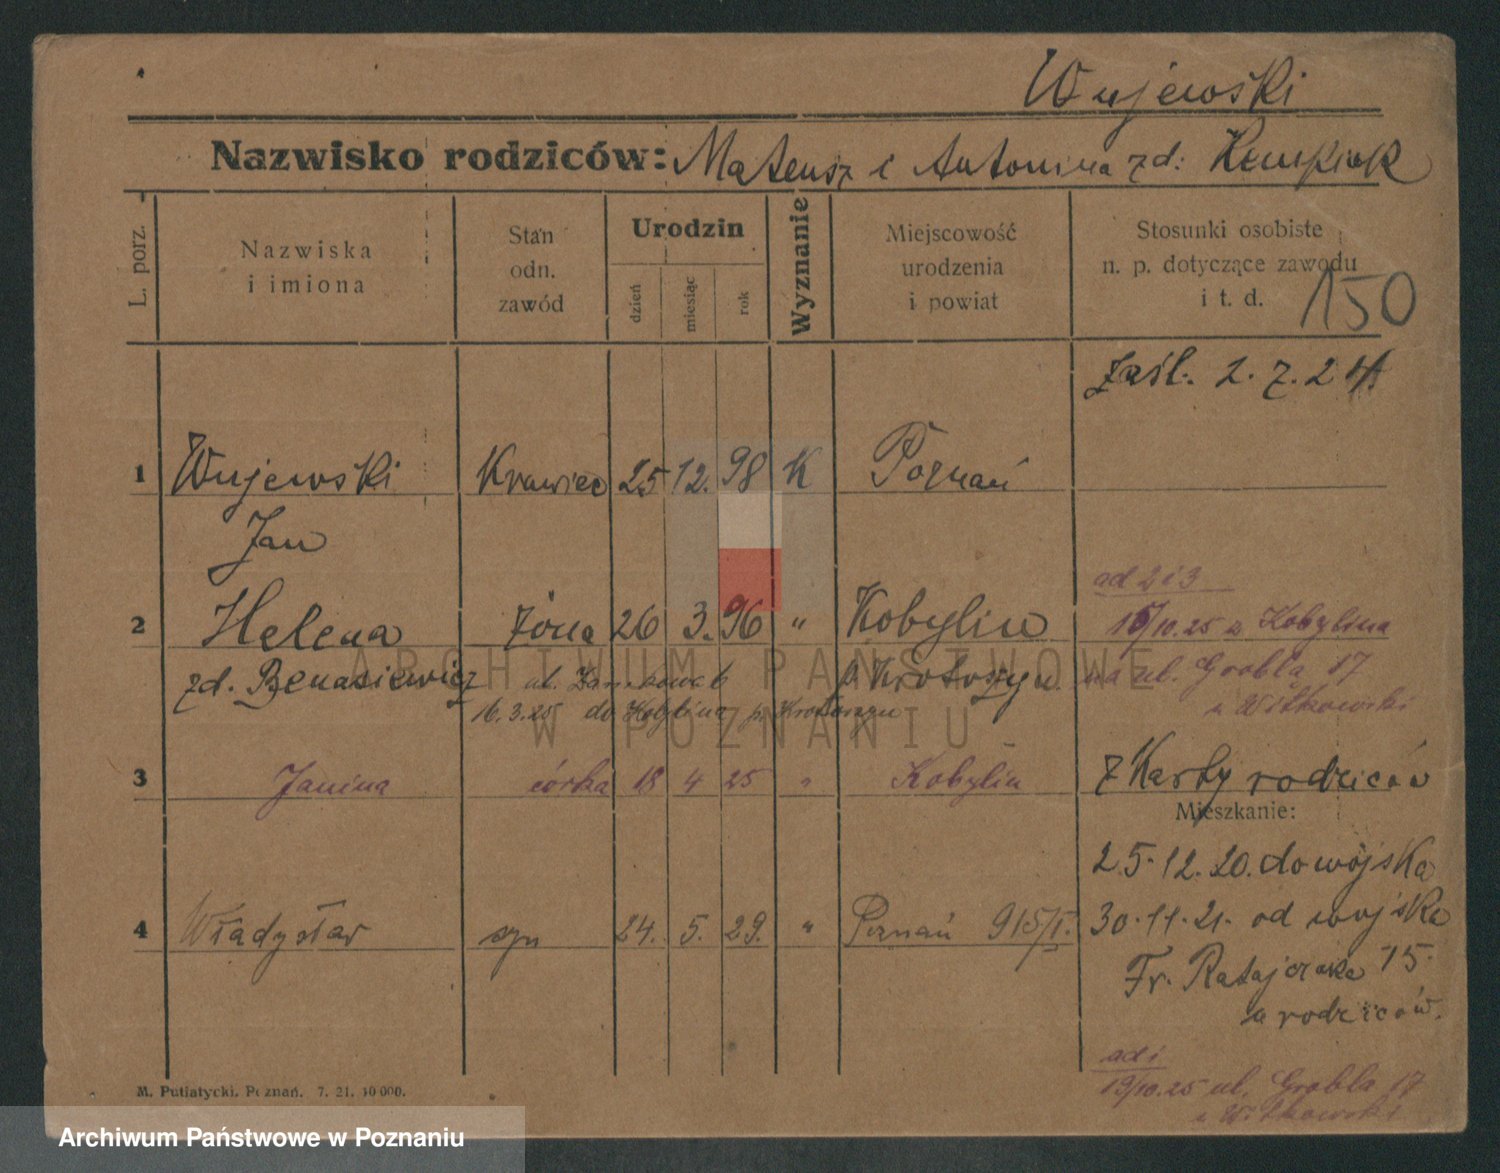 Wujewski
Nazwisko rodziców: Mateusz i Antonina zd:
L. porz.
Nazwiska
i imiona
Stan
odn.
zawód
Urodzin
dzień
miesiąc
rok
Wyznanie
Miejscowość
urodzenia
i powiat
Stosunki osobiste
n. p. dotyczące zawodu
i t. d.
150
zaśl. 2.7.24
1 Wujewski Krawiec 25 12. 98 K Poznań
Jan
ad 2 i 3
2 Helena żona 26 3. 96 " Kobylin
/10.25 z Kobylina
zd. Benasiewicz p Krotoszyn
na ul. Grobla 17
16.3.25 do Kobylina p. Krotoszyn
u Witkowski
3 Janina córka 18 4 25 " Kobylin
z Karty rodziców
Mieszkanie:
25.12.20. do wojska
4 Władysław syn 24. 5. 29. " Poznań 915/I.
30.11.21. od wojska
Fr. Ratajczaka 15.
u rodziców.
ad 1
19/10.25 ul. Grobla 17
u Witkowski
M. Putiatycki. Poznań. 7. 21. 10 000.
ARCHIWUM PAŃSTWOWE
W POZNANIU
Archiwum Państwowe w Poznaniu